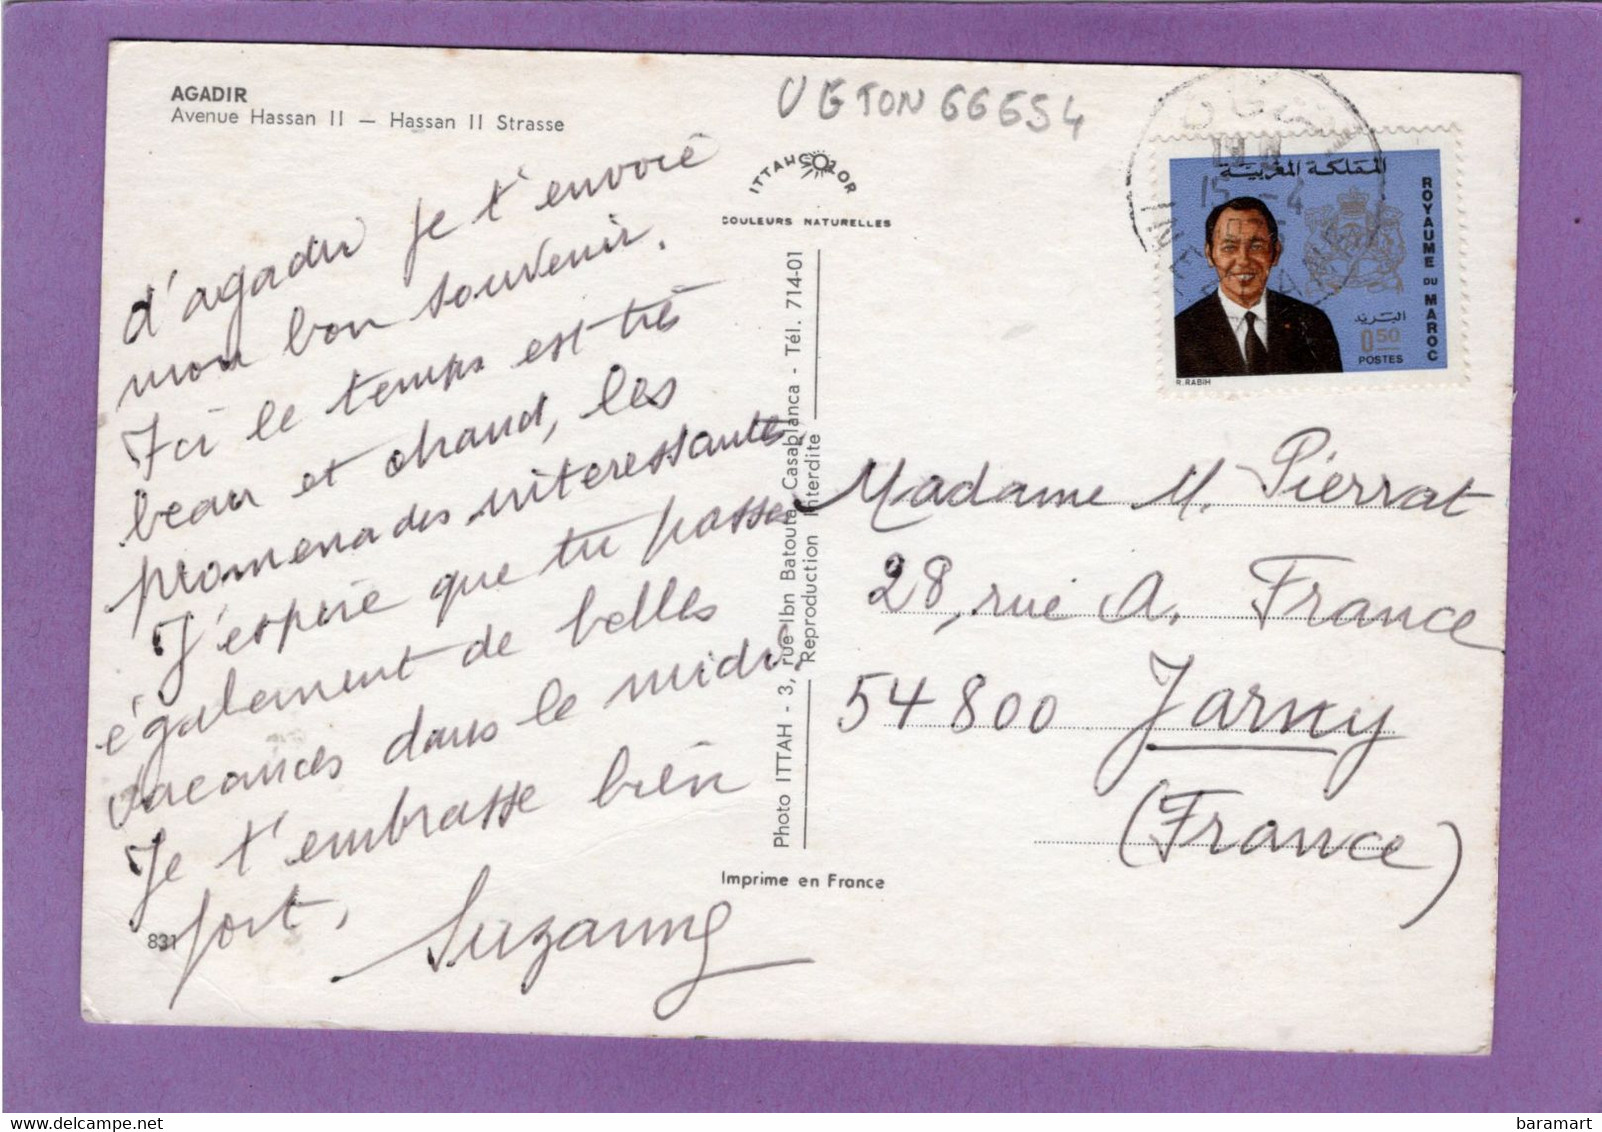 AGADIR
Avenue Hassan II — Hassan II Strasse
d'agadir je t'envoie
mon bon souvenir.
Ici le temps est très
beau et chaud, les
promenades interessantes.
J'espère que tu passes
également de belles
vacances dans le midi.
Je t'embrasse bien
fort,
Suzanne
831
ITTAHCOLOR
COULEURS NATURELLES
Photo ITTAH - 3, rue Ibn Batouta Casablanca - Tél. 714-01
Reproduction Interdite
Imprime en France
المملكة المغربية
ROYAUME DU MAROC
البريد
0.50
POSTES
R.RABIH
15 -4
Madame M. Pierrat
28, rue A. France
54800 Jarny
(France)
baramart